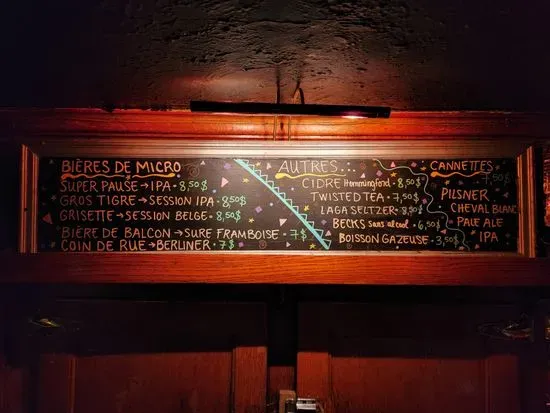 BIÈRES DE MICRO
SUPER PAUSE → IPA • 8,50$
GROS TIGRE → SESSION IPA • 8,50$
GRISETTE → SESSION BELGE • 8,50$
BIÈRE DE BALCON → SURE FRAMBOISE • 7$
COIN DE RUE → BERLINER • 7$
AUTRES
CIDRE Hemmingford • 8,50$
TWISTED TEA • 7,50$
LAGA SELTZER • 8,50$
BECKS sans alcool • 6,50$
BOISSON GAZEUSE • 3,50$
CANNETTES
7,50$
PILSNER
CHEVAL BLANC
PALE ALE
IPA